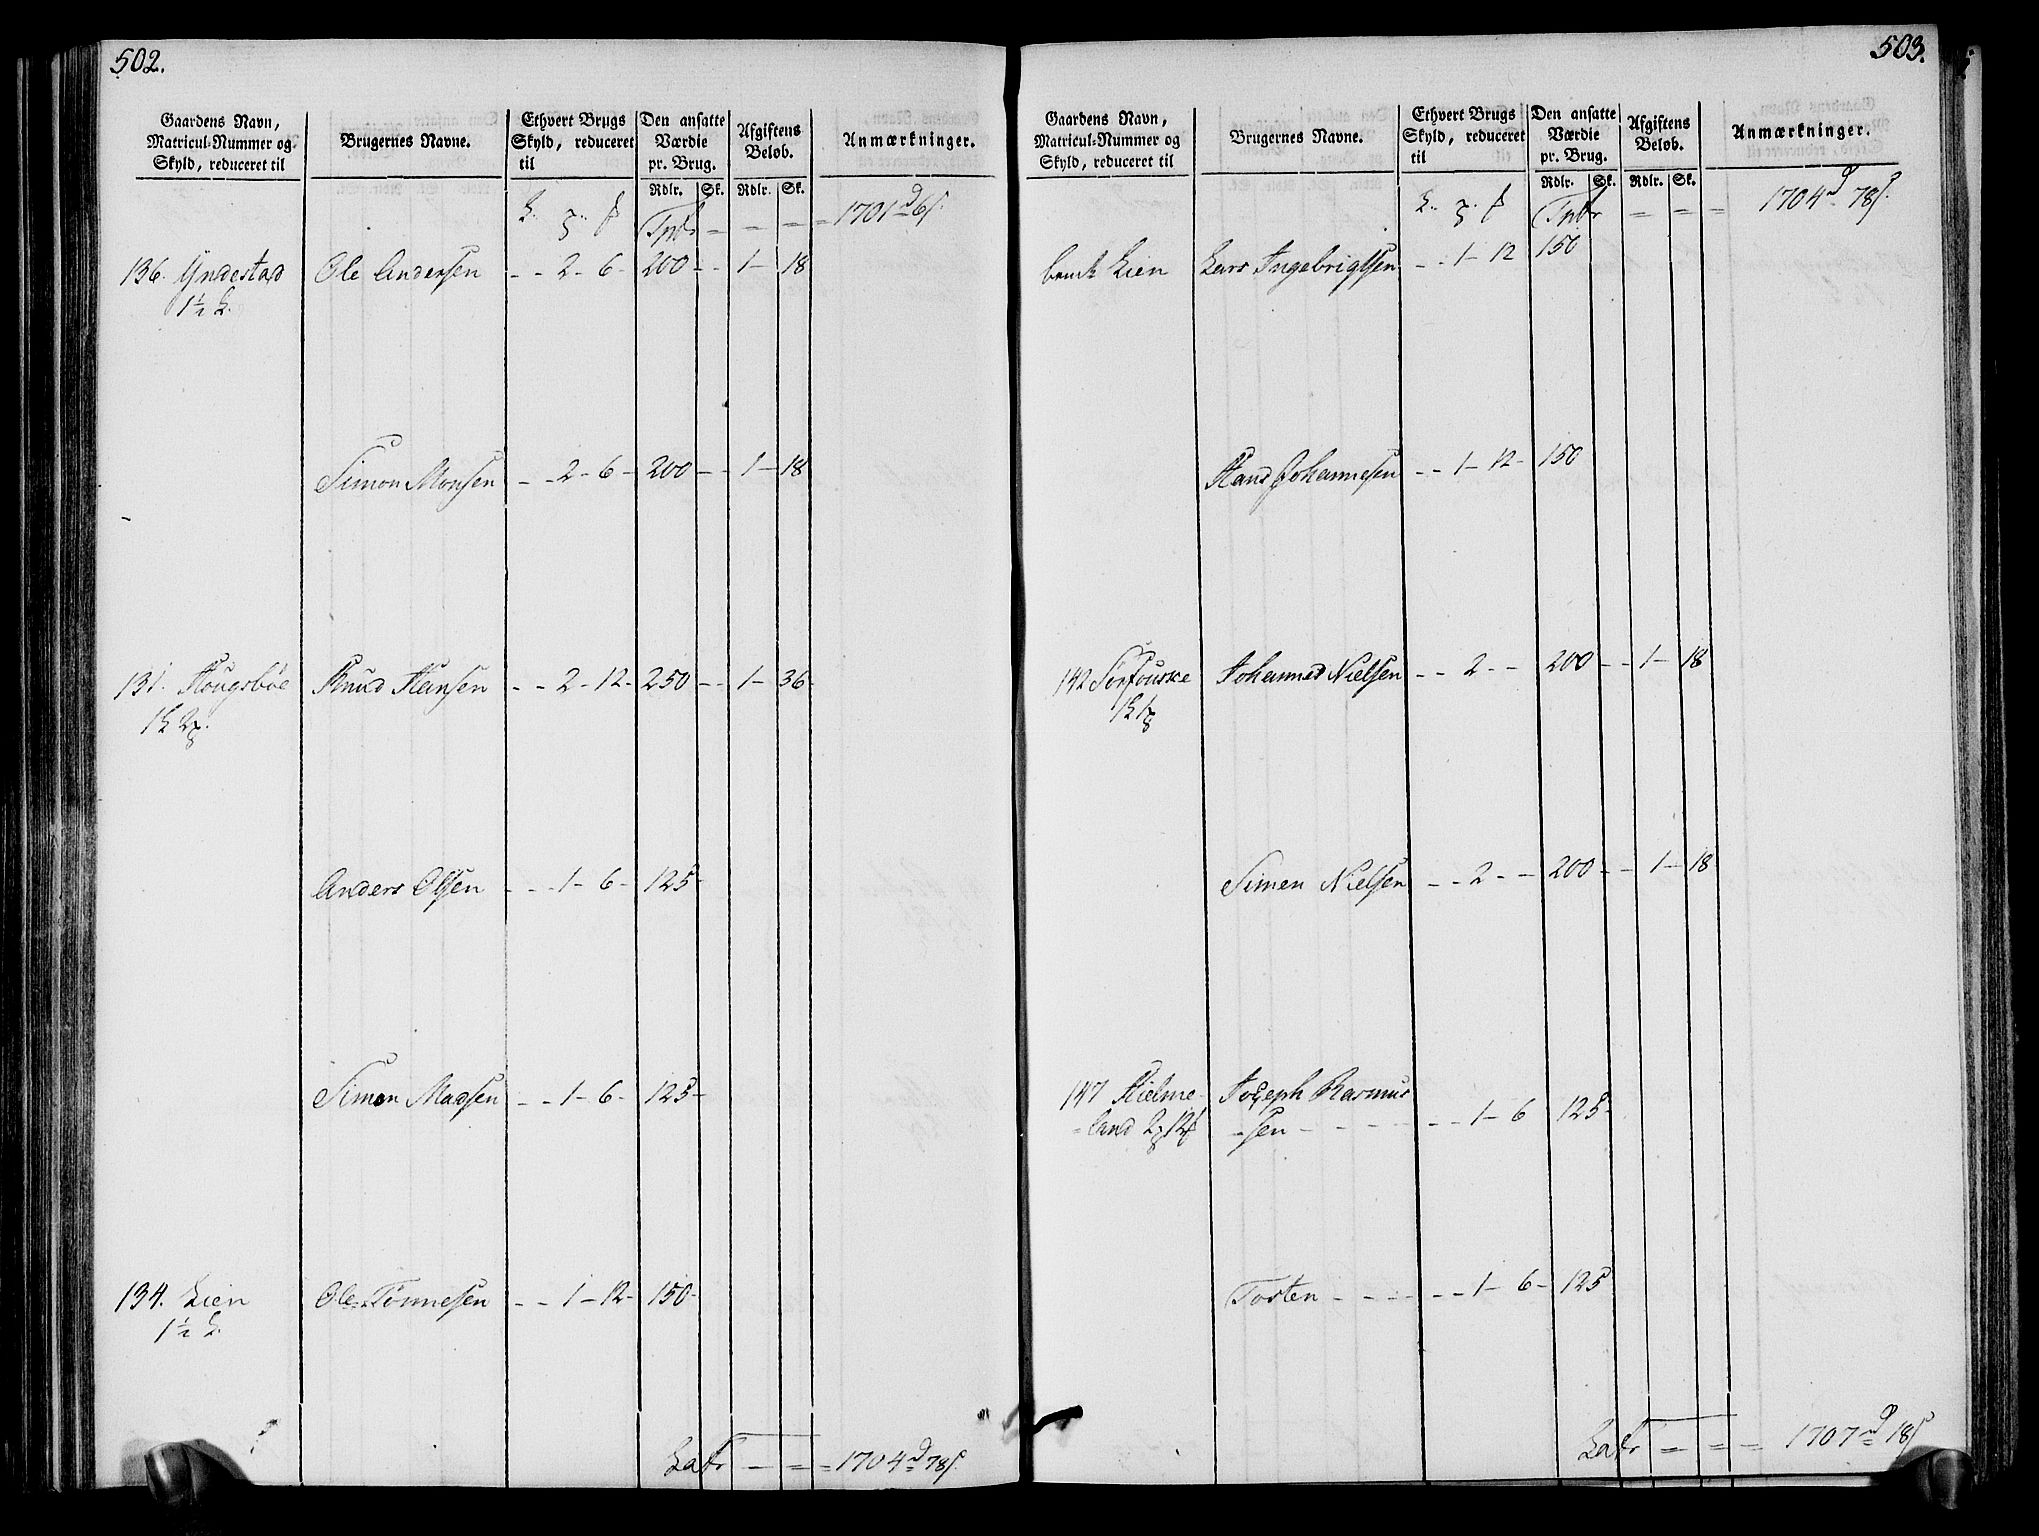 502.
Gaardens Navn, Matricul-Nummer og Skyld, reduceret til
Brugernes Navne.
Ethvert Brugs Skyld, reduceret til
Den ansatte Værdie pr. Brug.
Afgiftens Beløb.
Anmærkninger.
Rdlr. Sk. Rdlr. Sk.
Tpbr - - - = 1701 d 6 s.
136. Yndestad Ole Andersen - - 2 - 6 - 200 - - 1 - 18
1½ L.
Simon Monsen - - 2 - 6 - 200 - - 1 - 18
131. Hougsbøe Knud Hansen - - 2 - 12 - 250 - - 1 - 36 -
Anders Olsen - - - 1 - 6 - 125 -
Simon Madsen - - 1 - 6 - 125 -
134. Lien Ole Tønnesen - - 1 - 12 - 150 -
1½ L.
Latr - = = 1704 d 78 s.
503.
Gaardens Navn, Matricul-Nummer og Skyld, reduceret til
Brugernes Navne.
Ethvert Brugs Skyld, reduceret til
Den ansatte Værdie pr. Brug.
Afgiftens Beløb.
Anmærkninger.
Rdlr. Sk. Rdlr. Sk.
Tpbr = = = 1704 d 78 s.
Lien Lars Ingebrigtsen - - 1 - 12 150
Hans Johannesen - - 1 - 12 - 150
142 Sørfouske Johannes Nielsen - - 2 - - 200 - - 1 - 18
Simen Nielsen - - 2 - - 200 - - 1 - 18
147 Hielme- Joseph Rasmus
= land -sen - - - - - - 1 - 6 125 -
Tosten - - - - - - 1 - 6 - 125
Latr = = = 1707 d 18 s